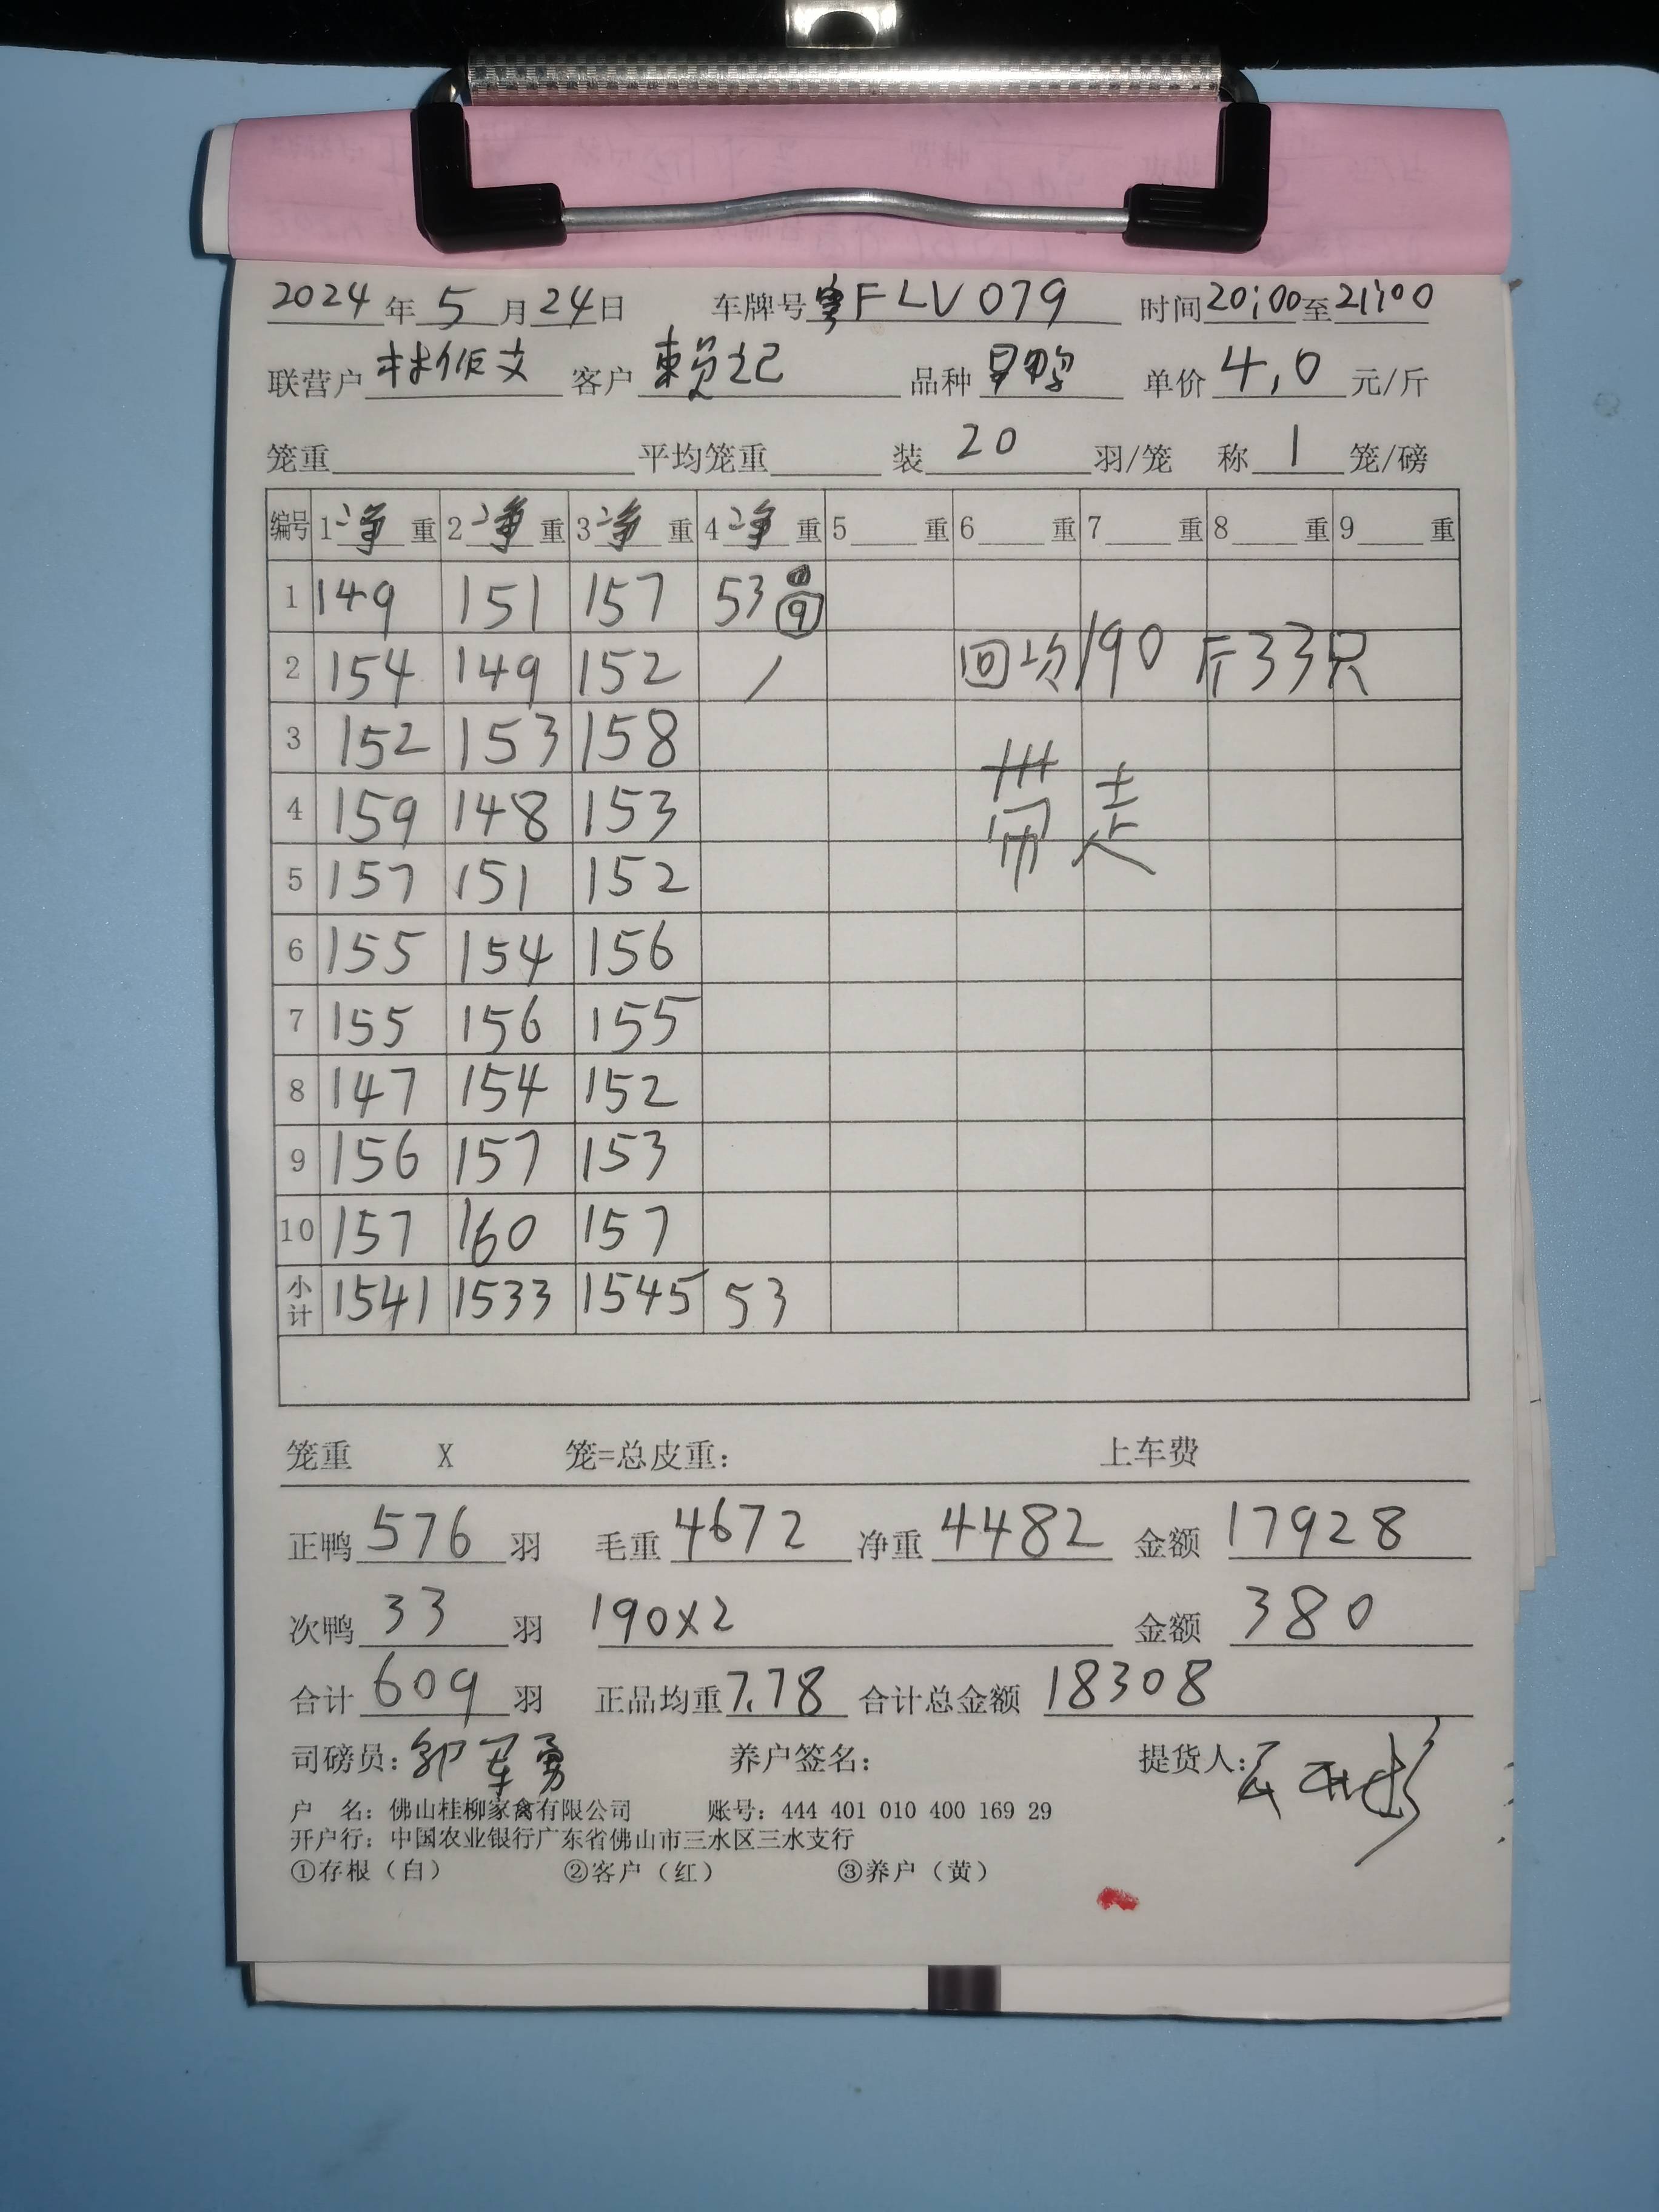 2024年5月24日 车牌号粤FLV079 时间20:00至21:00
联营户林作文 客户赖记 品种 单价4.0元/斤
笼重 平均笼重 装20羽/笼 称1笼/磅
编号 1净重 2净重 3净重 4净重 5重 6重 7重 8重 9重
1 149 151 157 53 9
2 154 149 152 / 回次190斤33只
3 152 153 158
带走
4 159 148 153
5 157 151 152
6 155 154 156
7 155 156 155
8 147 154 152
9 156 157 153
10 157 160 157
小计 1541 1533 1545 53
笼重 X 笼=总皮重: 上车费
正鸭576羽 毛重4672 净重4482 金额17928
次鸭33羽 190x2 金额380
合计609羽 正品均重7.78 合计总金额18308
司磅员:邹军勇 养户签名: 提货人:
户 名: 佛山桂柳家禽有限公司 账号: 444 401 010 400 169 29
开户行: 中国农业银行广东省佛山市三水区三水支行
①存根（白） ②客户（红） ③养户（黄）